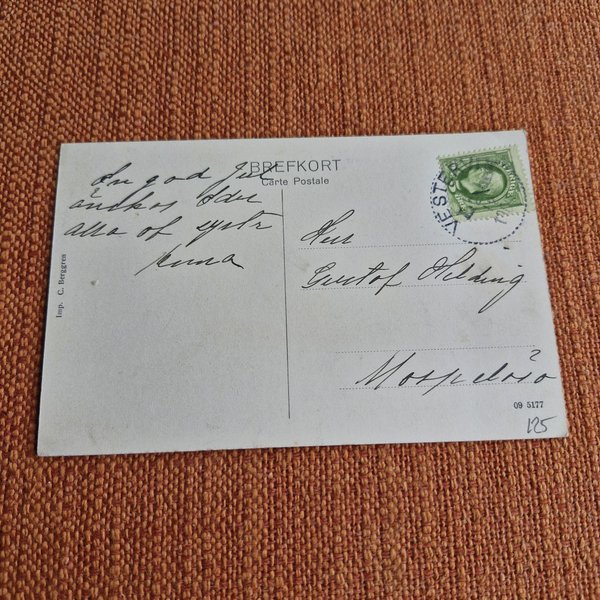 BREFKORT
Carte Postale
En god Jul
önskas Eder
alla af syster
Anna
Imp. C. Berggren
Herr
Gustof Helding
VESTER
SVERIGE
09 5177
125